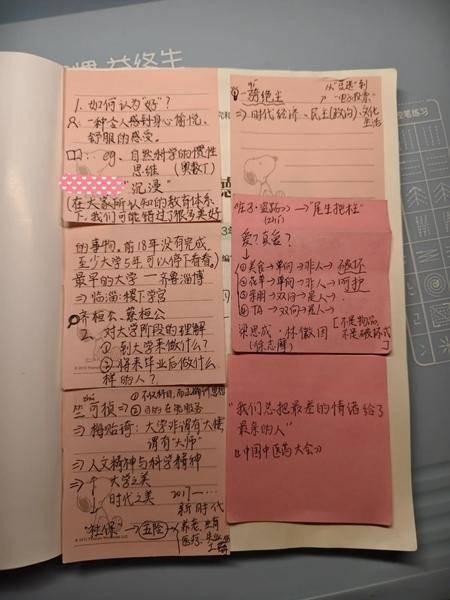 1. 如何认为"好"?
一种令人感到身心愉悦、
舒服的感受。
eg. 自然科学的惯性
思维 (奥数丁)
"沉浸"
(在大家所认知的教育体系
下,我们可能错过了很多美好
的事物。前18年没有完成,
至少大学5年可以停下看看。)
最早的大学—齐鲁淄博
⇒临淄:稷下学宫
齐桓公、蔡桓公
2. 对大学阶段的理解
① 到大学来做什么?
② 将来毕业后做什么
样的人?
zhú
竺可桢⇒
⇒梅贻琦:大学非谓有大楼
谓有"大师"
⇒人文精神与科学精神
⇒ 大学之美
时代之美
2017—…
新时代
"社保"→五险
养老、生育
医疗、失业
工伤
qí
一骑绝尘
⇒时代经济、民主(政治)、文化
生活
→"尾生抱柱"
爱?真爱?
① 美食→单向→非人→破坏
② 花草→单向→非人→呵护
③ 亲朋→双向→是人
④ TA→双向→是人
梁思成·林徽因
(徐志摩)
[不是物品,
不是破坏式]
"我们总把最差的情绪给了
最亲的人"
《中国中医药大会》